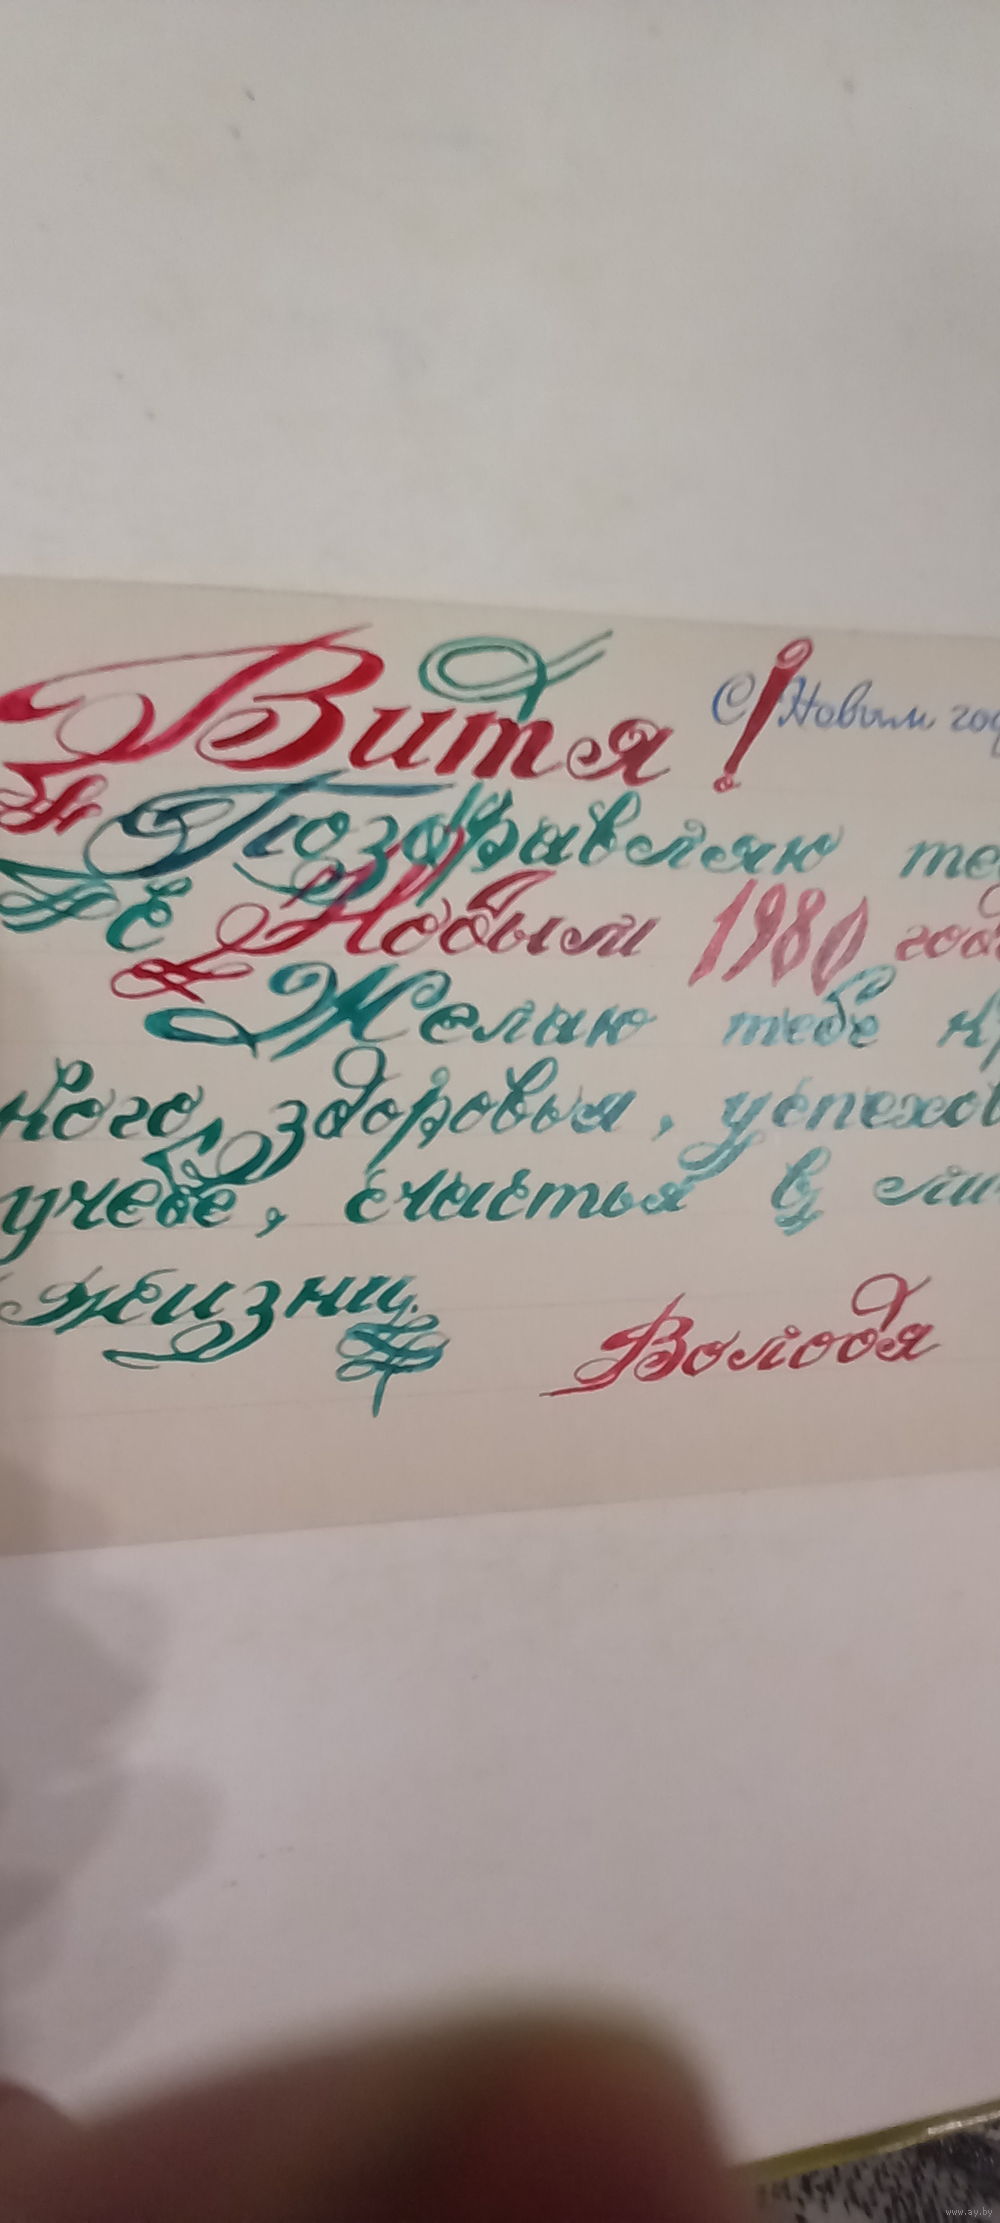 Витя! С Новым год
Поздравляю те
с Новым 1980 год
Желаю тебе кр
кого здоровья, успехов
учебе, счастья в ли
жизни.
Володя
www.ay.by